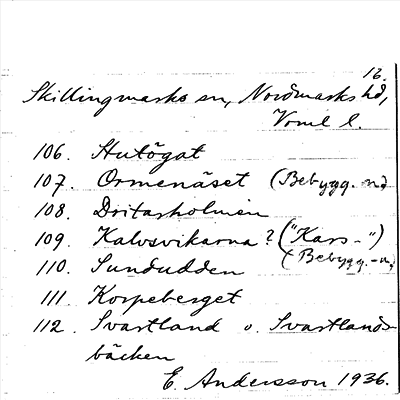 16.
Skillingmarks sn, Nordmarks hd,
Vrml l.
106. Hutögat
107. Ormenäset (Bebygg. n.)
108. Dritarholmen
109. Kalvsvikarna? ("Kars-")
110. Sundudden (Bebygg.-n.)
111. Korpeberget
112. Svartland o. Svartlands-
bäcken
E. Andersson 1936.